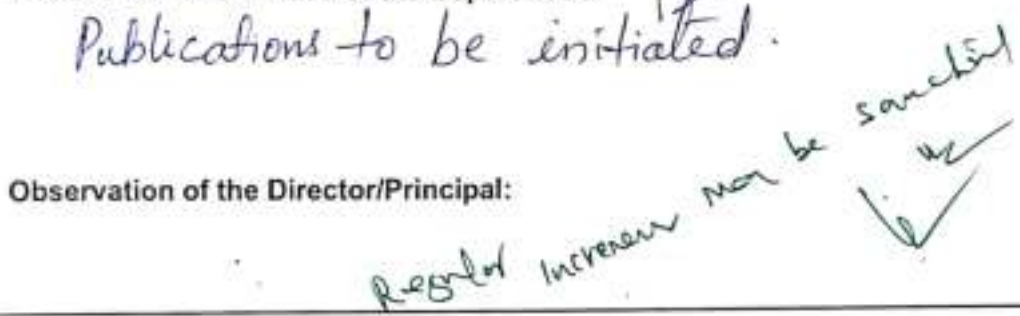 Publications to be initiated.
Observation of the Director/Principal:
Regular Increment may be sanctioned